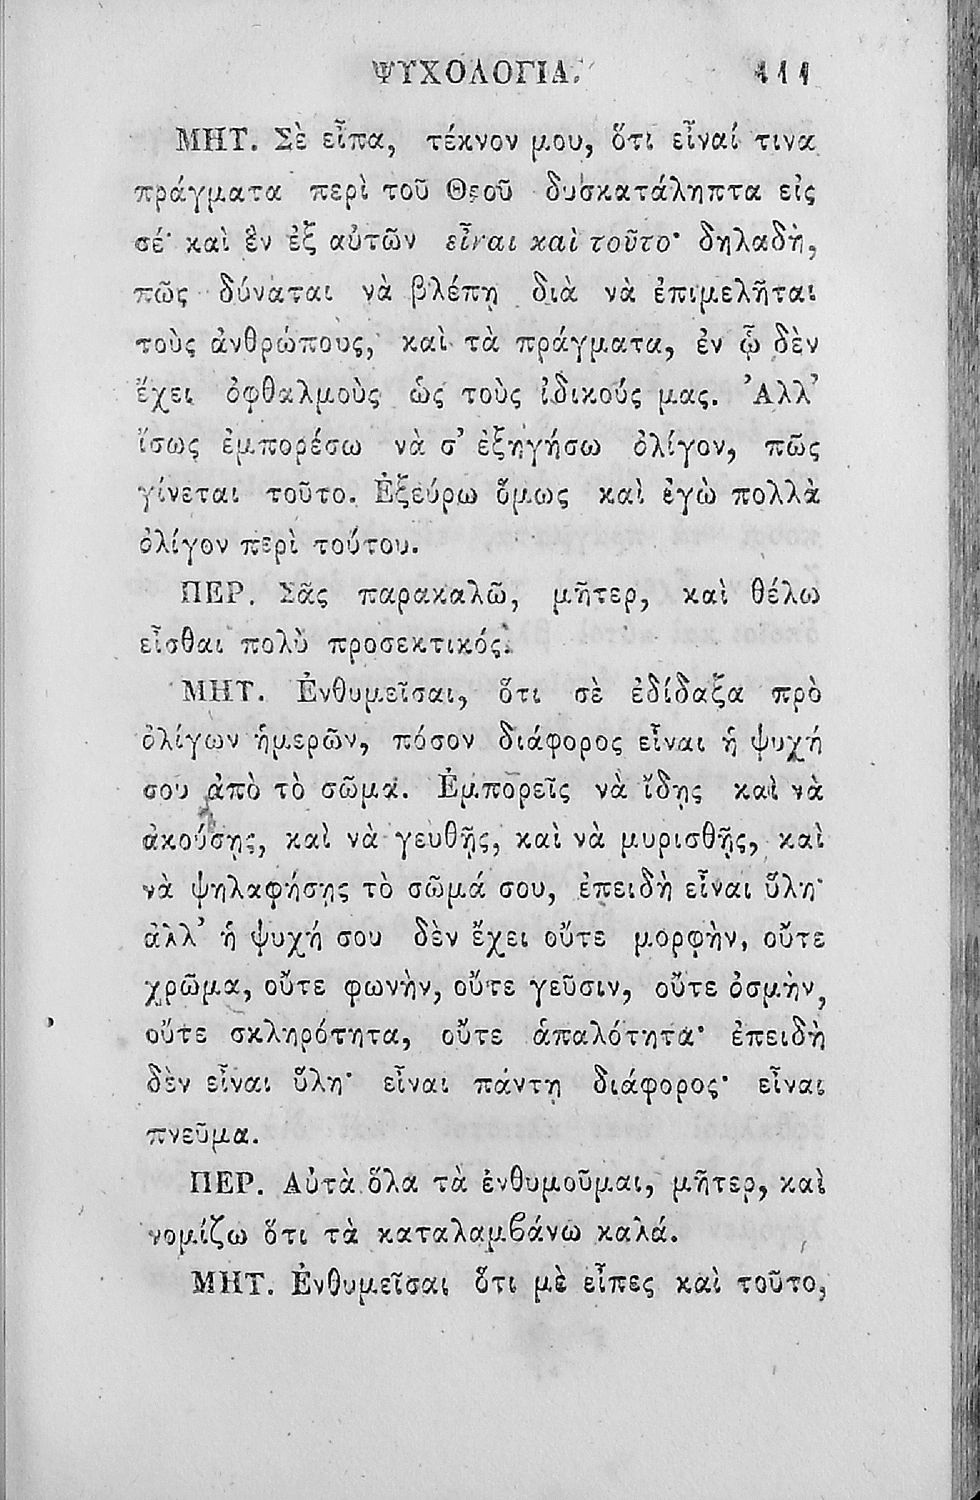 ΨΥΧΟΛΟΓΙΑ. 111
ΜΗΤ. Σὲ εἶπα, τέκνον μου, ὅτι εἶναί τινα
πράγματα περὶ τοῦ Θεοῦ δυσκατάληπτα εἰς
σέ· καὶ ἓν ἐξ αὐτῶν εἶναι καὶ τοῦτο· δηλαδὴ,
πῶς δύναται νὰ βλέπῃ διὰ νὰ ἐπιμελῆται
τοὺς ἀνθρώπους, καὶ τὰ πράγματα, ἐν ᾧ δὲν
ἔχει ὀφθαλμοὺς ὡς τοὺς ἰδικούς μας. Ἀλλ’
ἴσως ἐμπορέσω νὰ σ’ ἐξηγήσω ὀλίγον, πῶς
γίνεται τοῦτο. Ἐξεύρω ὅμως καὶ ἐγὼ πολλὰ
ὀλίγον περὶ τούτου.
ΠΕΡ. Σᾶς παρακαλῶ, μῆτερ, καὶ θέλω
εἶσθαι πολὺ προσεκτικός.
ΜΗΤ. Ἐνθυμεῖσαι, ὅτι σὲ ἐδίδαξα πρὸ
ὀλίγων ἡμερῶν, πόσον διάφορος εἶναι ἡ ψυχή
σου ἀπὸ τὸ σῶμα. Ἐμπορεῖς νὰ ἴδῃς καὶ νὰ
ἀκούσῃς, καὶ νὰ γευθῇς, καὶ νὰ μυρισθῇς, καὶ
νὰ ψηλαφήσῃς τὸ σῶμά σου, ἐπειδὴ εἶναι ὕλη·
ἀλλ’ ἡ ψυχή σου δὲν ἔχει οὔτε μορφὴν, οὔτε
χρῶμα, οὔτε φωνὴν, οὔτε γεῦσιν, οὔτε ὀσμὴν,
οὔτε σκληρότητα, οὔτε ἁπαλότητα· ἐπειδὴ
δὲν εἶναι ὕλη· εἶναι πάντη διάφορος· εἶναι
πνεῦμα.
ΠΕΡ. Αὐτὰ ὅλα τὰ ἐνθυμοῦμαι, μῆτερ, καὶ
νομίζω ὅτι τὰ καταλαμβάνω καλά.
ΜΗΤ. Ἐνθυμεῖσαι ὅτι μὲ εἶπες καὶ τοῦτο,